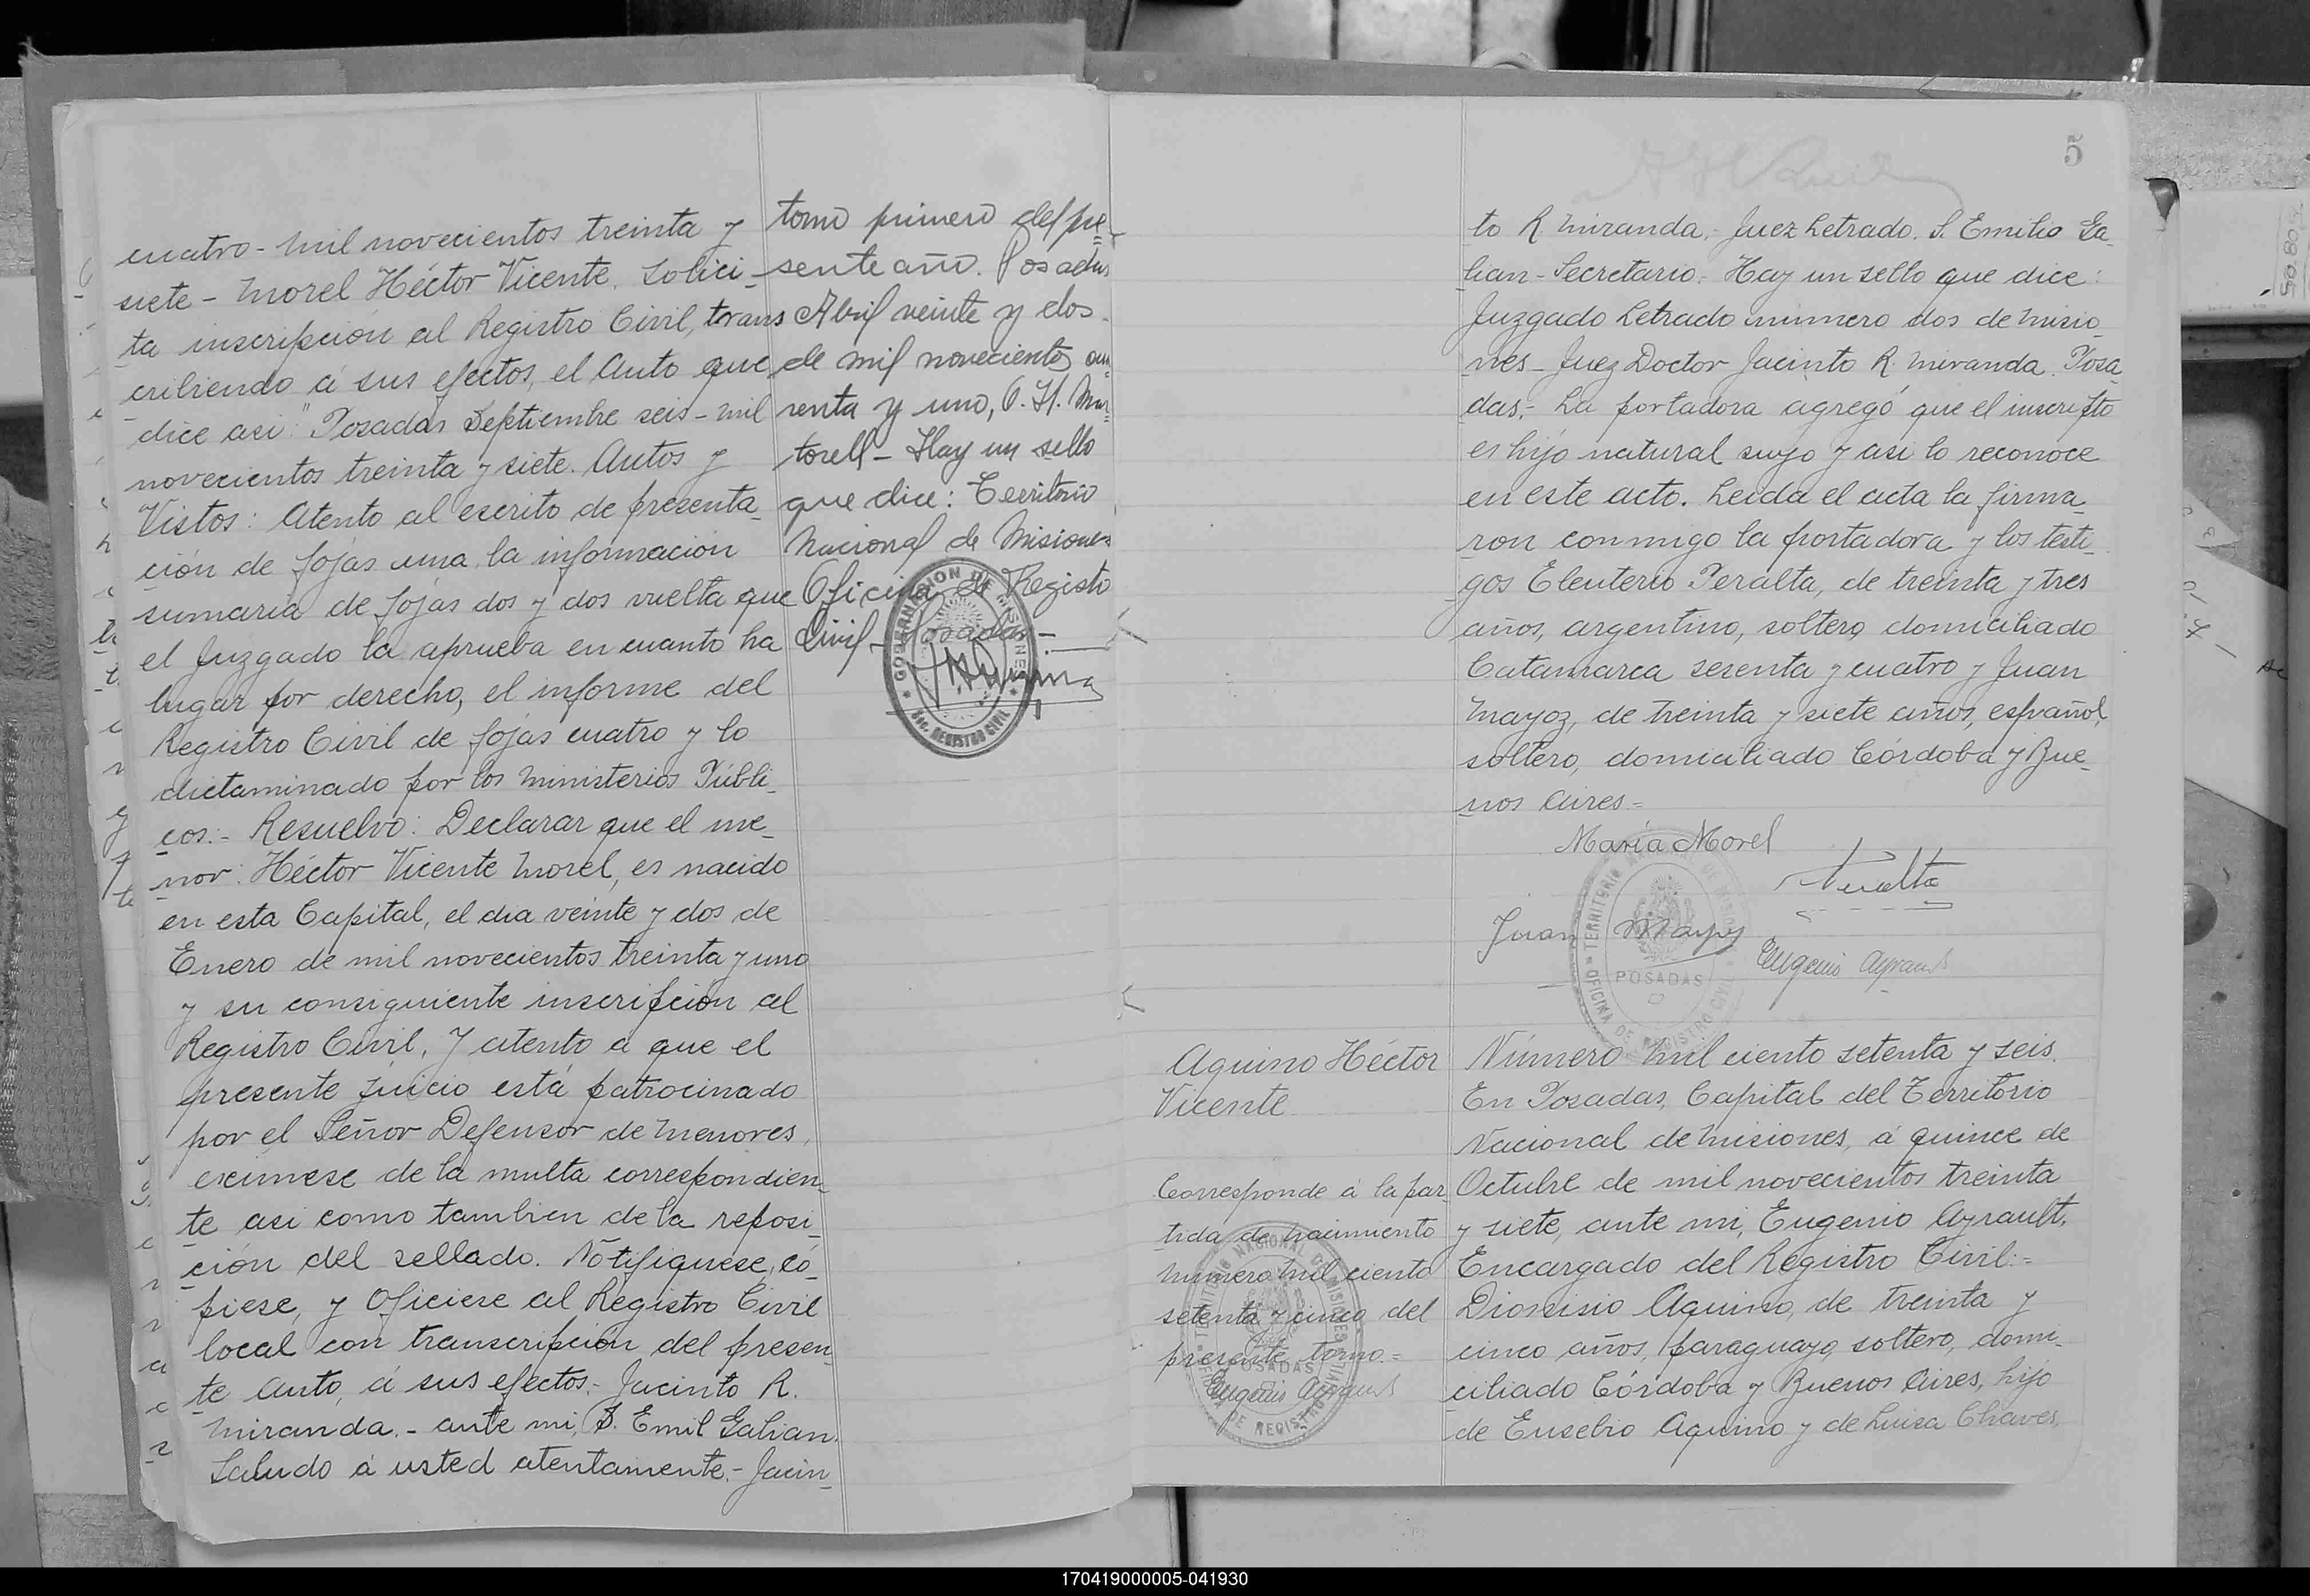 cuatro - mil novecientos treinta y
siete - Morel Héctor Vicente. Solici-
ta inscripción al Registro Civil, trans
cribiendo á sus efectos, el Auto que
dice asi: "Posadas Septiembre seis - mil
novecientos treinta y siete. Autos y
Vistos: Atento al escrito de presenta-
ción de fojas una, la información
sumaria de fojas dos y dos vuelta que
el Juzgado la aprueba en cuanto ha
lugar por derecho, el informe del
Registro Civil de fojas cuatro y lo
dictaminado por los Ministerios Públi-
cos:- Resuelvo: Declarar que el me-
nor: Héctor Vicente Morel, es nacido
en esta Capital, el dia veinte y dos de
Enero de mil novecientos treinta y uno
y su consiguiente inscripción al
Registro Civil. Y atento a que el
presente juicio está patrocinado
por el Señor Defensor de Menores,
exímese de la multa correspondien-
te asi como tambien de la reposi-
ción del sellado. Notifíquese, có-
piese, y Oficiese al Registro Civil
local con transcripción del presen-
te Auto, á sus efectos.- Jacinto R.
Miranda.- ante mi, S. Emil Galian.
Saludo á usted atentamente.- Jacin-
tomo primero del pre-
sente año. Posadas
Abril veinte y dos
de mil novecientos cua-
renta y uno, O. H. Mar-
torell - Hay un sello
que dice: Territorio
Nacional de Misiones
Oficina de Registro
Civil - Posadas -
GOBERNACION DE MISIONES
REGISTRO CIVIL
5
to R. Miranda.- Juez Letrado. S. Emilio Ga-
lian - Secretario.- Hay un sello que dice:
Juzgado Letrado número dos de Misio-
nes - Juez Doctor Jacinto R. Miranda. Posa-
das.- La portadora agregó que el inscripto
es hijo natural suyo y asi lo reconoce
en este acto. Leida el acta la firma-
ron conmigo la portadora y los testi-
gos Eleuterio Peralta, de treinta y tres
años, argentino, soltero, domiciliado
Catamarca sesenta y cuatro y Juan
Mayoz, de treinta y siete años, español,
soltero, domiciliado Córdoba y Bue-
nos Aires =
María Morel
Peralta
Juan Mayoz
Eugenio Ayrault
TERRITORIO
POSADAS
OFICINA DE REGISTRO CIVIL
Aquino Héctor
Vicente
Corresponde á la par-
tida de nacimiento
número mil ciento
setenta y cinco del
presente tomo.=
Eugenio Ayrault
POSADAS
Número mil ciento setenta y seis.
En Posadas, Capital del Territorio
Nacional de Misiones, á quince de
Octubre de mil novecientos treinta
y siete, ante mi, Eugenio Ayrault,
Encargado del Registro Civil:=
Dionisio Aquino, de treinta y
cinco años, paraguayo, soltero, domi-
ciliado Córdoba y Buenos Aires, hijo
de Eusebio Aquino y de Luisa Chaves,
170419000005-041930